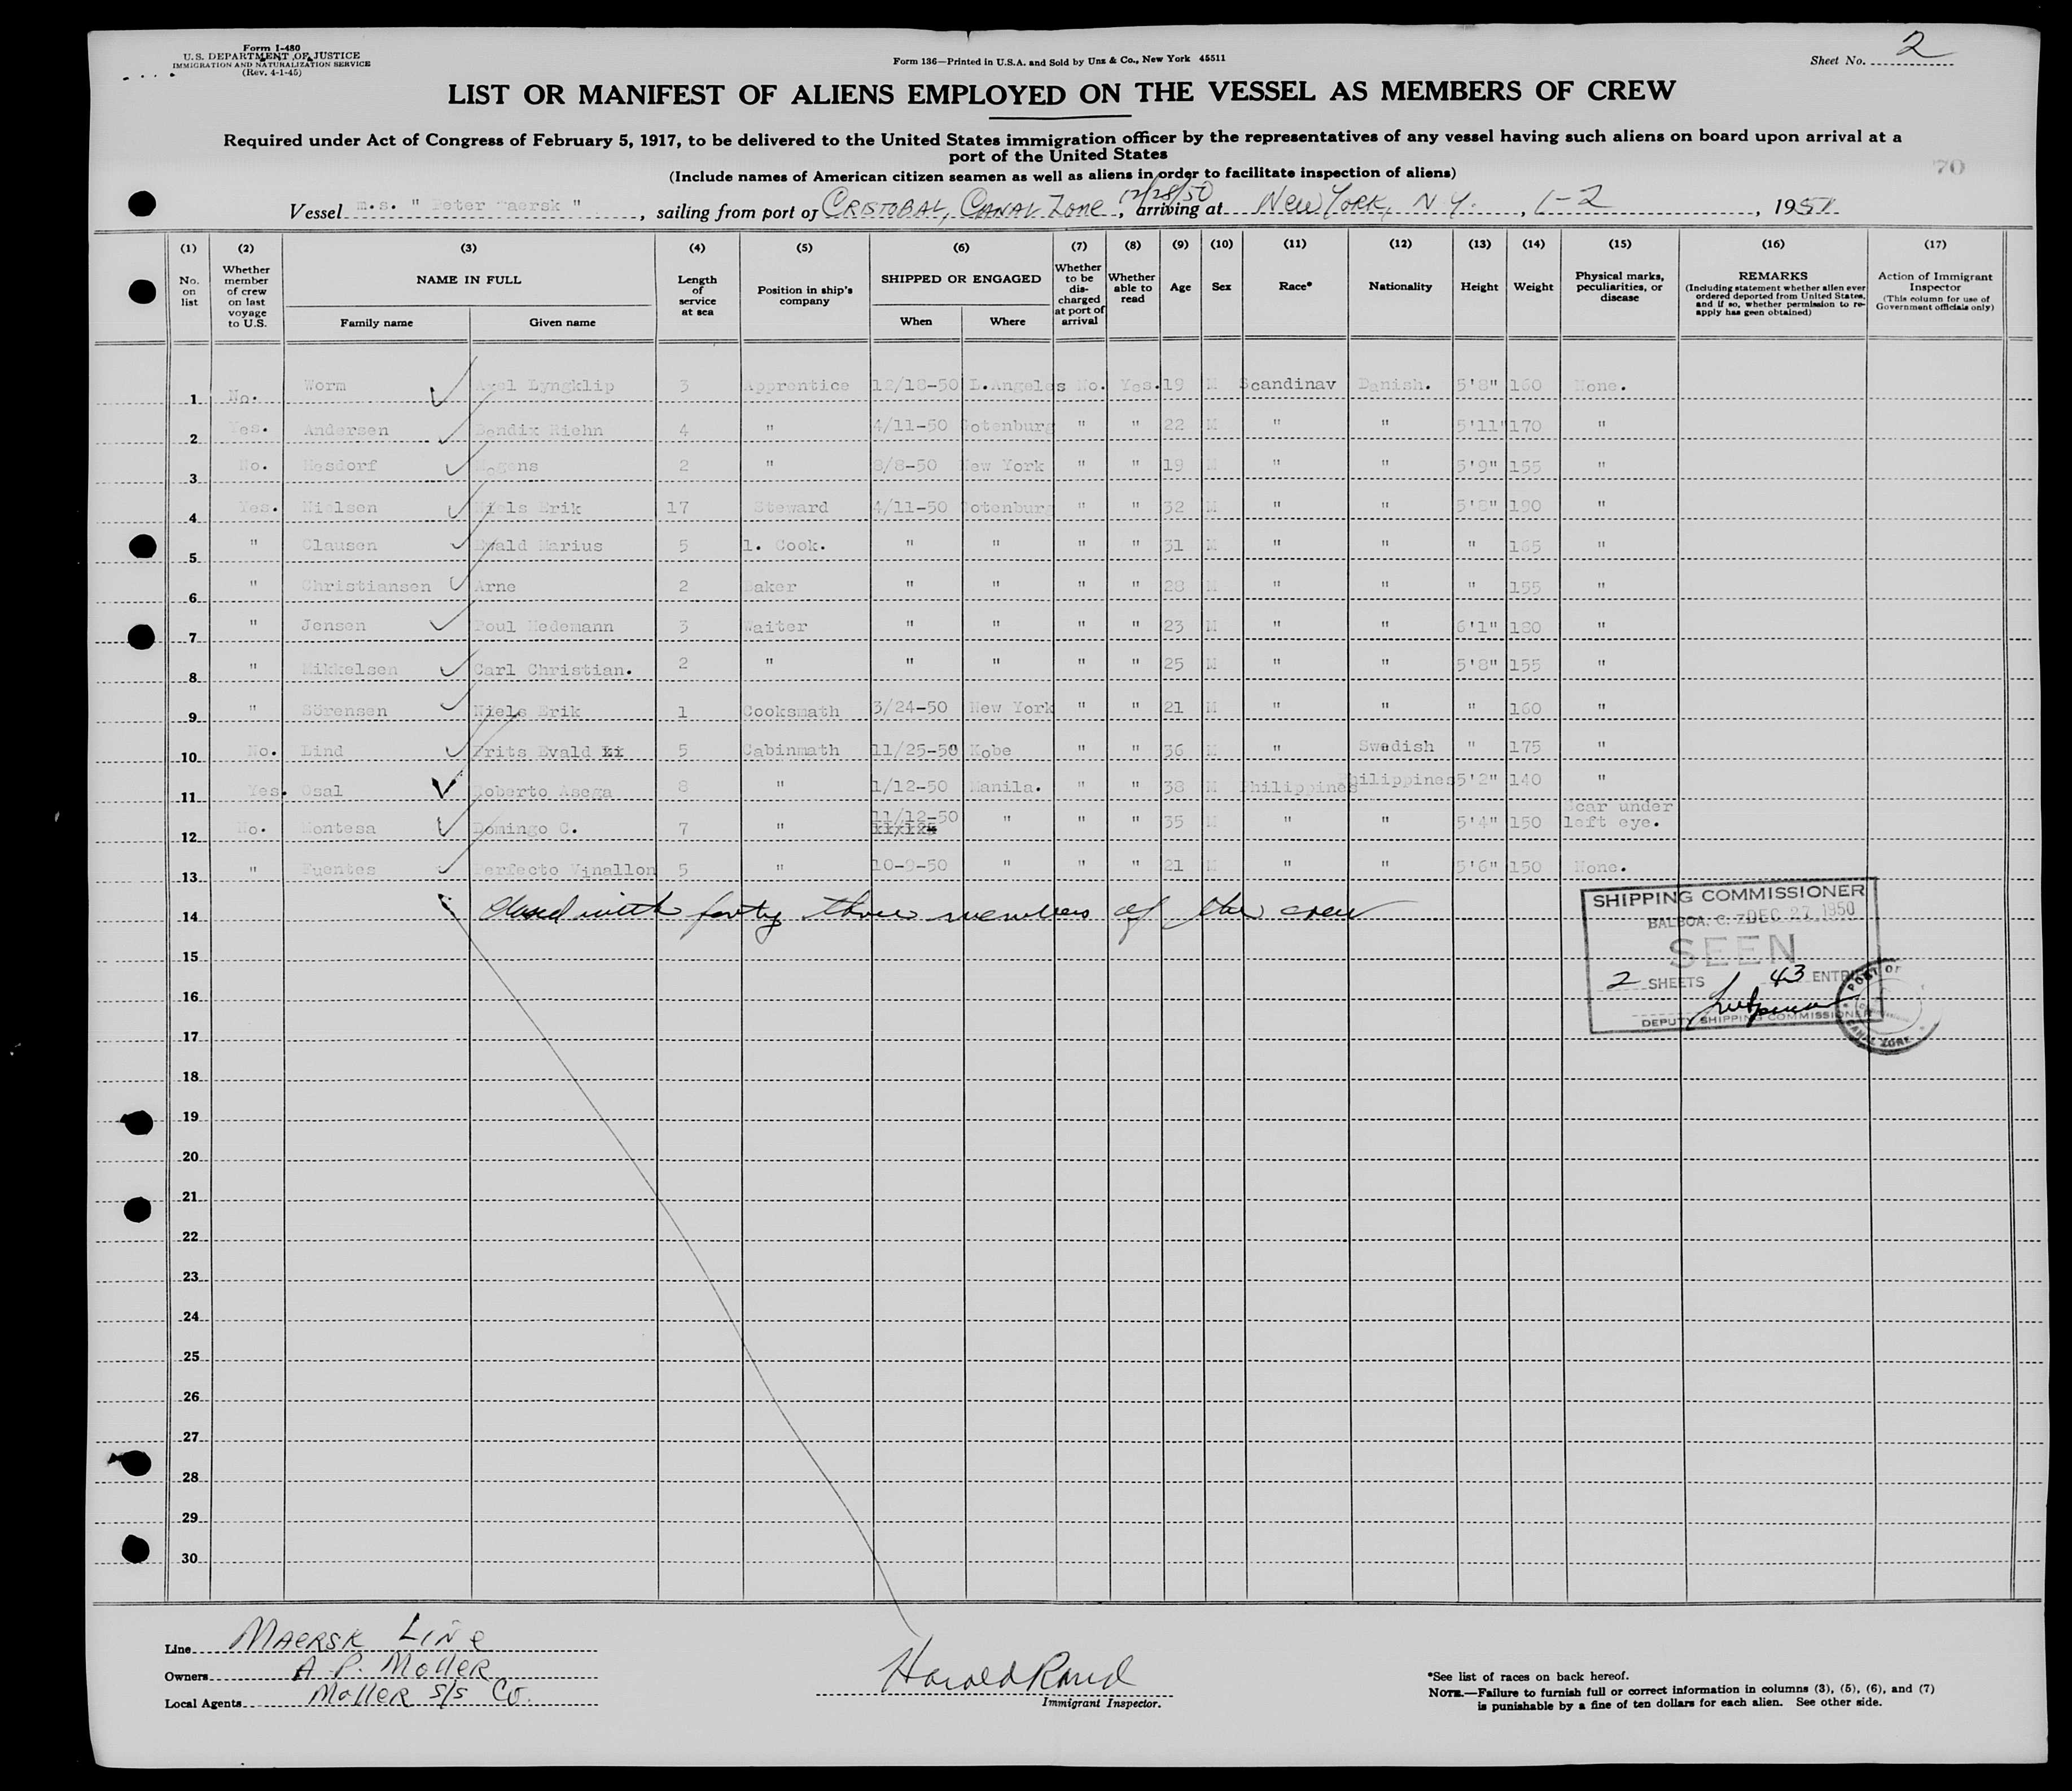 Form I-480
U.S. DEPARTMENT OF JUSTICE
IMMIGRATION AND NATURALIZATION SERVICE
(Rev. 4-1-45)
Form 136—Printed in U.S.A. and Sold by Unz & Co., New York 45511
Sheet No. 2
LIST OR MANIFEST OF ALIENS EMPLOYED ON THE VESSEL AS MEMBERS OF CREW
Required under Act of Congress of February 5, 1917, to be delivered to the United States immigration officer by the representatives of any vessel having such aliens on board upon arrival at a
port of the United States
70
(Include names of American citizen seamen as well as aliens in order to facilitate inspection of aliens)
12/28/50
Vessel m.s. " Peter Maersk " , sailing from port of CRISTOBAL, CANAL ZONE , arriving at NEW YORK, N.Y. , 1-2 , 1951
(1) (2) (3) (4) (5) (6) (7) (8) (9) (10) (11) (12) (13) (14) (15) (16) (17)
No. on list
Whether member of crew on last voyage to U.S.
NAME IN FULL
Family name
Given name
Length of service at sea
Position in ship's company
SHIPPED OR ENGAGED
When
Where
Whether to be discharged at port of arrival
Whether able to read
Age
Sex
Race*
Nationality
Height
Weight
Physical marks, peculiarities, or disease
REMARKS
(Including statement whether alien ever ordered deported from United States, and if so, whether permission to re-apply has geen obtained)
Action of Immigrant Inspector
(This column for use of Government officials only)
1 No. Worm Axel Lyngklip 3 Apprentice 12/18-50 L.Angeles No. Yes. 19 M Scandinav Danish. 5'8" 160 None.
2 Yes. Andersen Bendix Riehn 4 " 4/11-50 Gotenburg " " 22 M " " 5'11" 170 "
3 No. Mesdorf Mogens 2 " 8/8-50 New York " " 19 M " " 5'9" 155 "
4 Yes. Nielsen Niels Erik 17 Steward 4/11-50 Gotenburg " " 32 M " " 5'8" 190 "
5 " Clausen Ewald Marius 5 1. Cook. " " " " 31 M " " " 165 "
6 " Christiansen Arne 2 Baker " " " " 28 M " " " 155 "
7 " Jensen Poul Hedemann 3 Waiter " " " " 23 M " " 6'1" 180 "
8 " Mikkelsen Carl Christian. 2 " " " " " 25 M " " 5'8" 155 "
9 " Sörensen Niels Erik 1 Cooksmath 3/24-50 New York " " 21 M " " " 160 "
10 No. Lind Frits Evald 5 Cabinmath 11/25-50 Kobe " " 36 M " Swedish " 175 "
11 Yes. Osal Roberto Asega 8 " 1/12-50 Manila. " " 38 M Philippines Philippines 5'2" 140 "
12 No. Montesa Domingo C. 7 " 11/12-50 " " " 35 M " " 5'4" 150 Scar under left eye.
13 " Fuentes Perfecto Vinallon 5 " 10-9-50 " " " 21 M " " 5'6" 150 None.
14 Closed with forty three members of the crew
15
16
17
18
19
20
21
22
23
24
25
26
27
28
29
30
SHIPPING COMMISSIONER
BALBOA, C. Z. DEC 27 1950
SEEN
2 SHEETS 43 ENTRIES
DEPUTY SHIPPING COMMISSIONER
PORT OF
CANAL ZONE
Line MAERSK LINE
Owners A. P. MOLLER
Local Agents MOLLER S/S CO.
Harold Rand
Immigrant Inspector.
*See list of races on back hereof.
NOTE.—Failure to furnish full or correct information in columns (3), (5), (6), and (7)
is punishable by a fine of ten dollars for each alien. See other side.